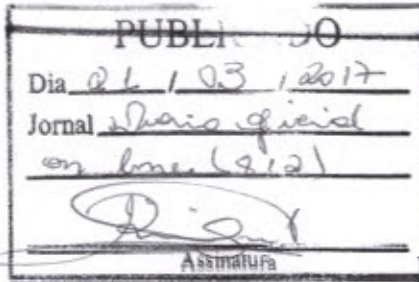 PUBLI DO
Dia / 03 / 2017
Jornal Diario oficial
on line (812)
Assinatura